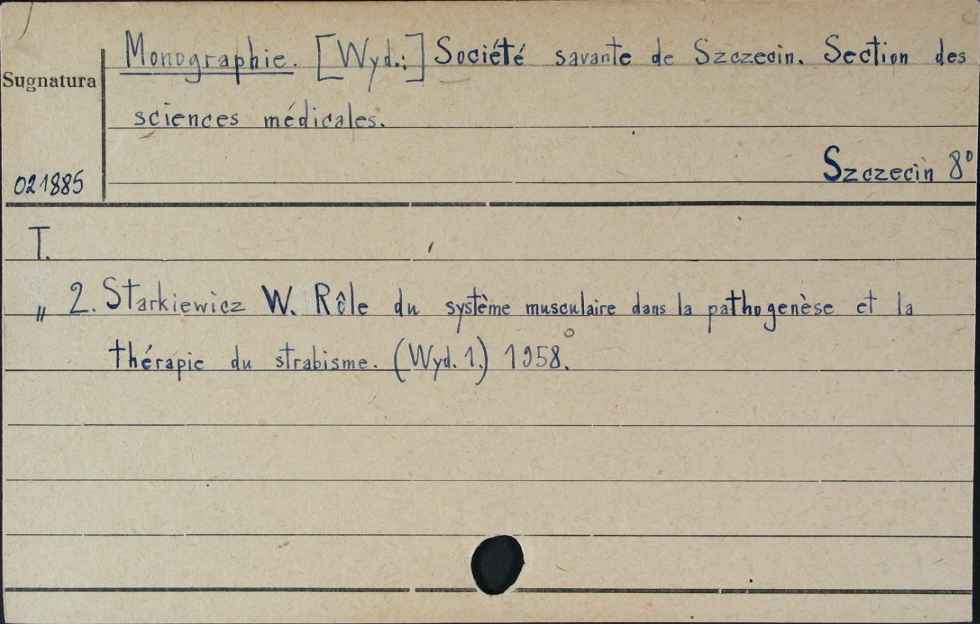 Monographie. [Wyd.:] Société savante de Szczecin. Section des
Sugnatura
sciences médicales.
Szczecin 8°
021885
T.
„ 2. Starkiewicz W. Rôle du système musculaire dans la pathogenèse et la
thérapie du strabisme. (Wyd. 1.) 1958.